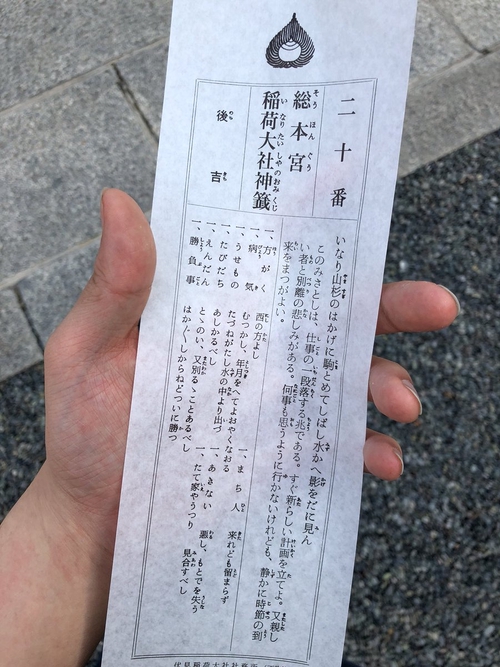 二十番
総本宮
稲荷大社神籤
後吉
いなり山杉のはかげに駒とめてしばし水かへ影をだに見ん
このみさとしは、仕事の一段落する兆である。すぐ新らしい計画を立てよ。又親し
い者と別離の悲しみがある。何事も思うように行かないけれども、静かに時節の到
来をまつがよい。
一、方がく 西の方よし
一、病気 むつかし、年月をへてよおやくなおる
一、うせもの たづねがたし水の中より出づ
一、たびだち あしかるべし
一、えんだん とゝのい、又別るゝことあるべし
一、勝負事 はか〴〵しからねどついに勝つ
一、まち人 来れども留まらず
一、あきない 悪し、もとでを失う
一、たて家やうつり 見合すべし
伏見稲荷大社社務所